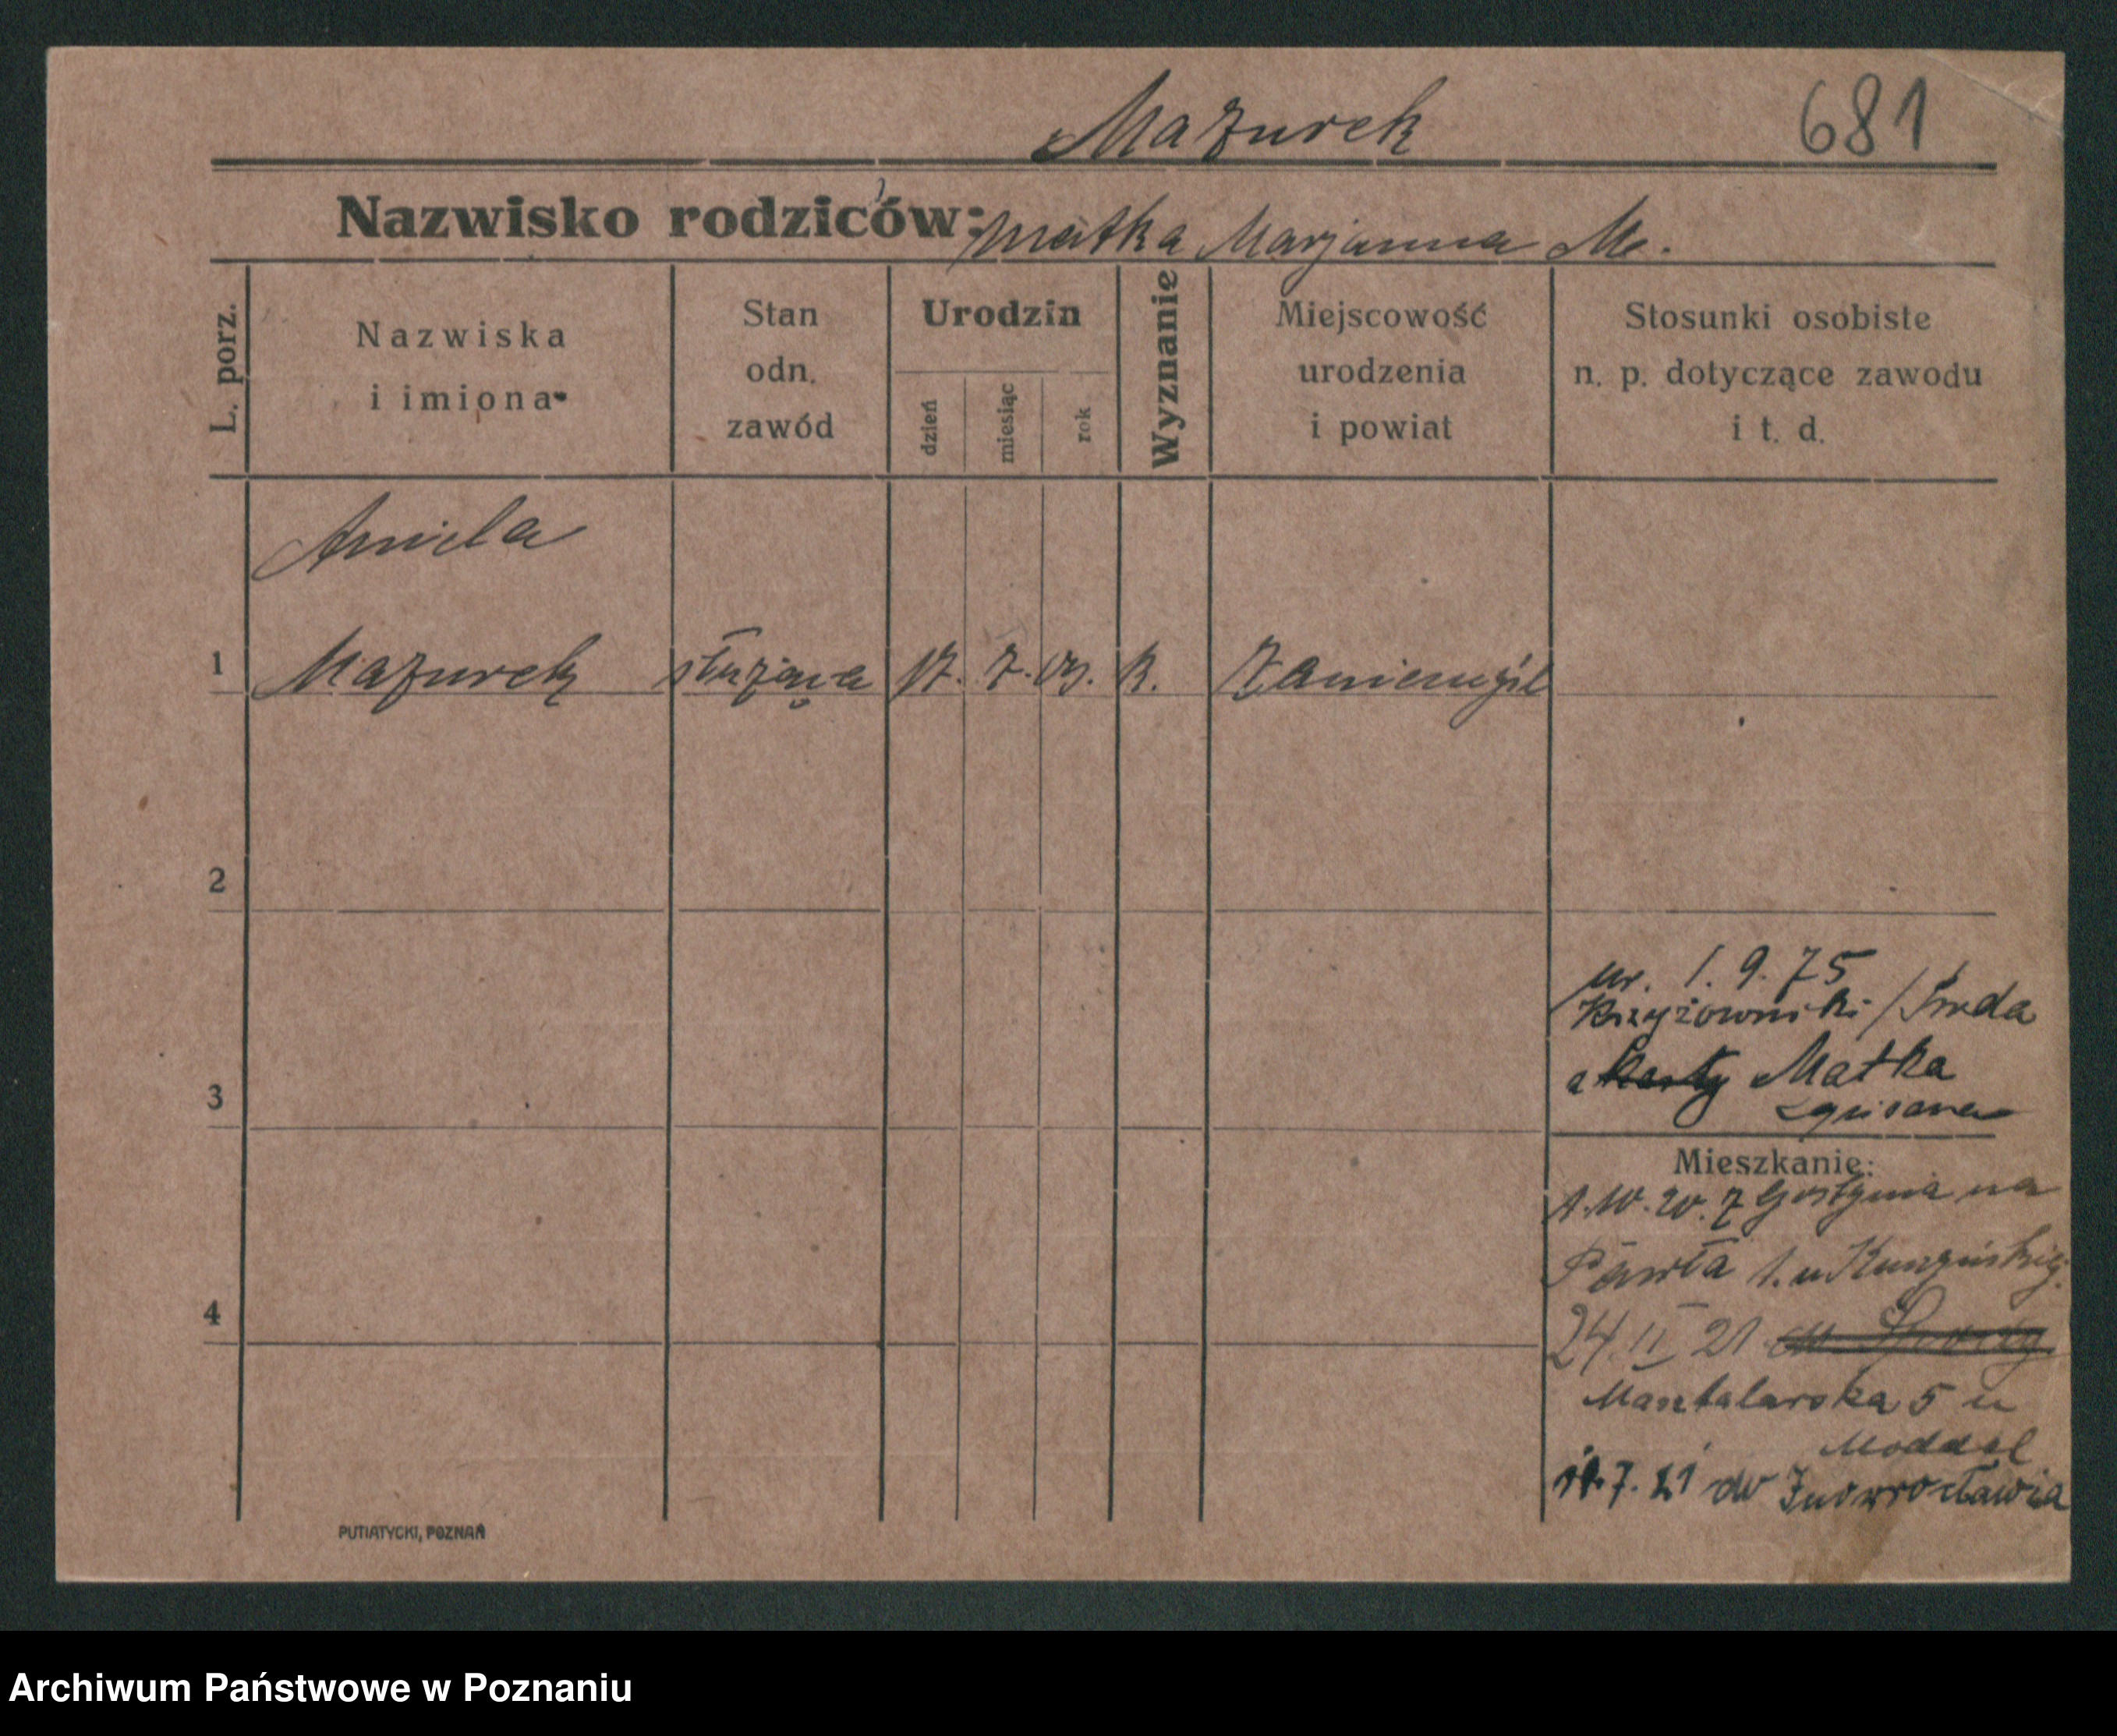 Mazurek
681
Nazwisko rodziców: matka Marjanna M.
L. porz.
Nazwiska
i imiona
Stan
odn.
zawód
Urodzin
dzień
miesiąc
rok
Wyznanie
Miejscowość
urodzenia
i powiat
Stosunki osobiste
n. p. dotyczące zawodu
i t. d.
Aniela
1 Mazurek służąca 17. 7. 03. k. Zaniemyśl
2
ur. 1. 9. 75
Krzyżowniki / Środa
a Matka
3
zapisana
Mieszkanie:
z Gostynia na
Pawła 1. u
4
24. II 21
Masztalarska 5 u
Moddel
7. 21 do Inowrocławia
PUTIATYCKI, POZNAŃ
Archiwum Państwowe w Poznaniu